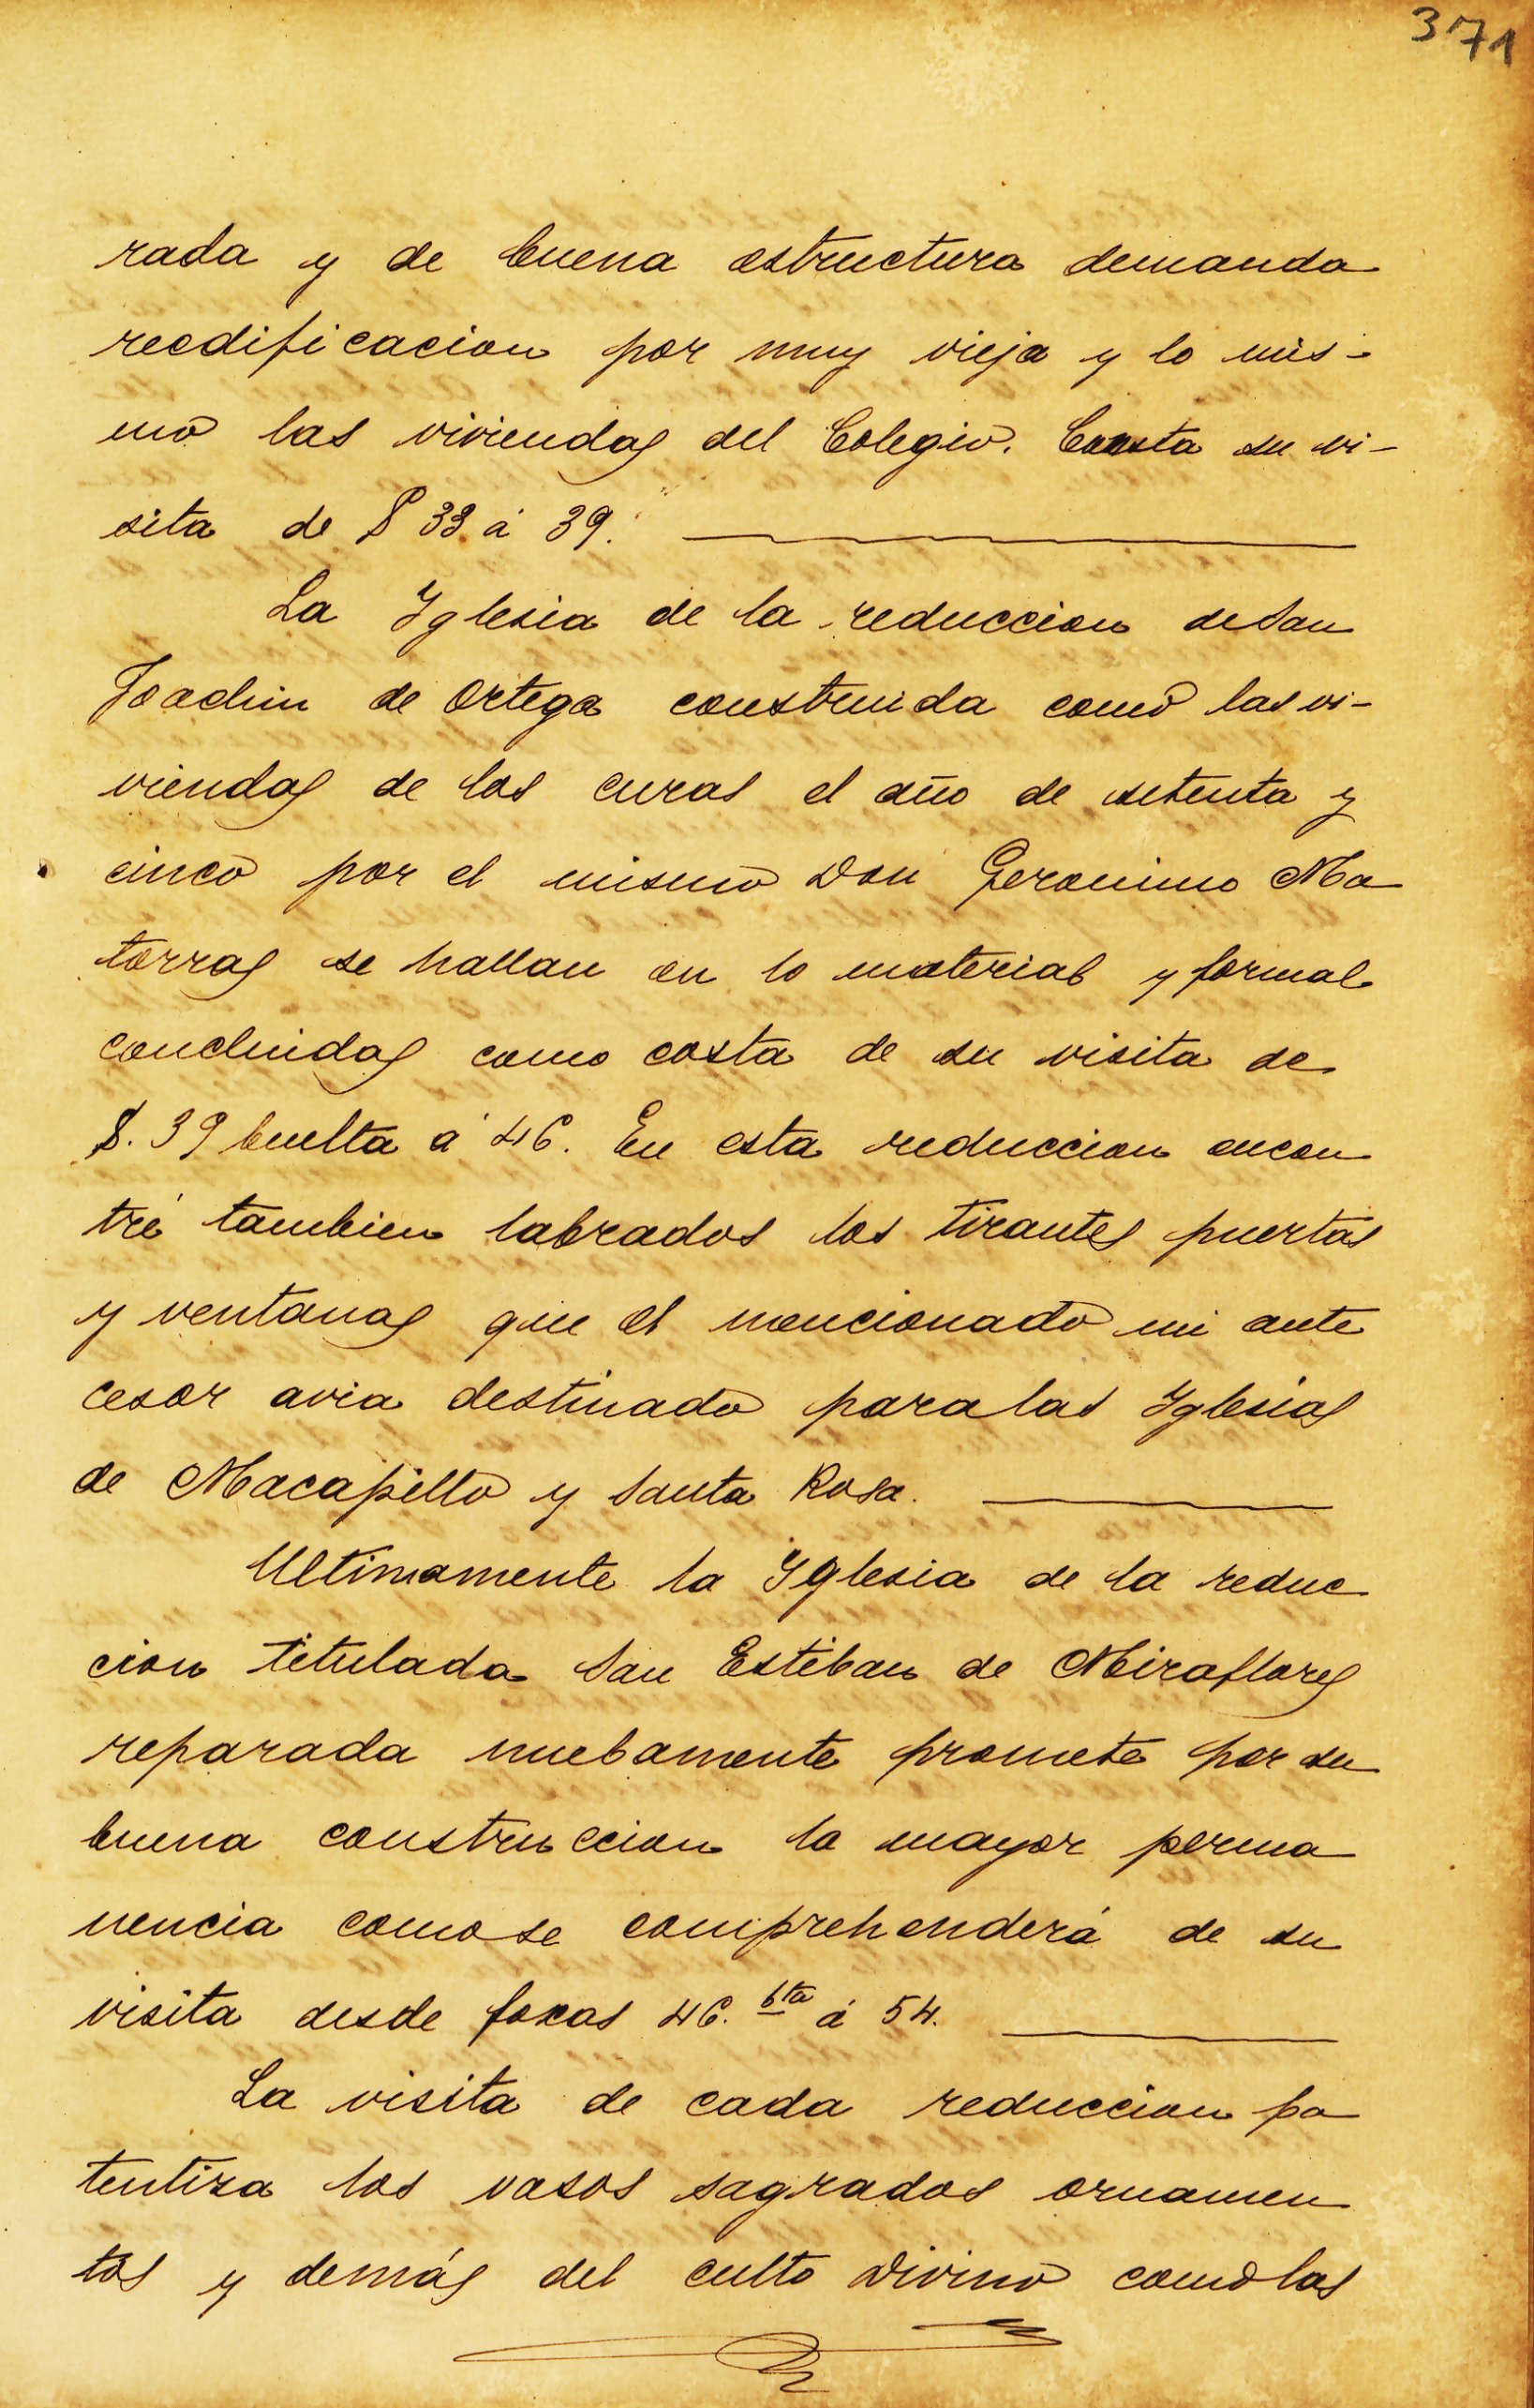 371
rada y de buena estructura demanda
reedificacion por muy vieja y lo mis-
mo las viviendas del Colegio. Consta su vi-
sita de f 33 á 39.
La Yglesia de la reduccion de San
Joachin de Ortega construida como las vi-
viendas de los curas el año de setenta y
cinco por el mismo Don Geronimo Ma
torras se hallan en lo material y formal
concluidas como costa de su visita de
f. 39 buelta á 46. En esta reduccion encon
tré tambien labrados los tirantes puertas
y ventanas que el mencionado mi ante
cesor avia destinado para las Yglesias
de Macapillo y Santa Rosa.
Ultimamente la Yglesia de la reduc
cion titulada San Esteban de Miraflores
reparada nuebamente promete por su
buena construccion la mayor perma
nencia como se comprehenderá de su
visita desde foxas 46. bta á 54.
La visita de cada reduccion pa
tentiza los vasos sagrados ornamen
tos y demás del culto Divino como las